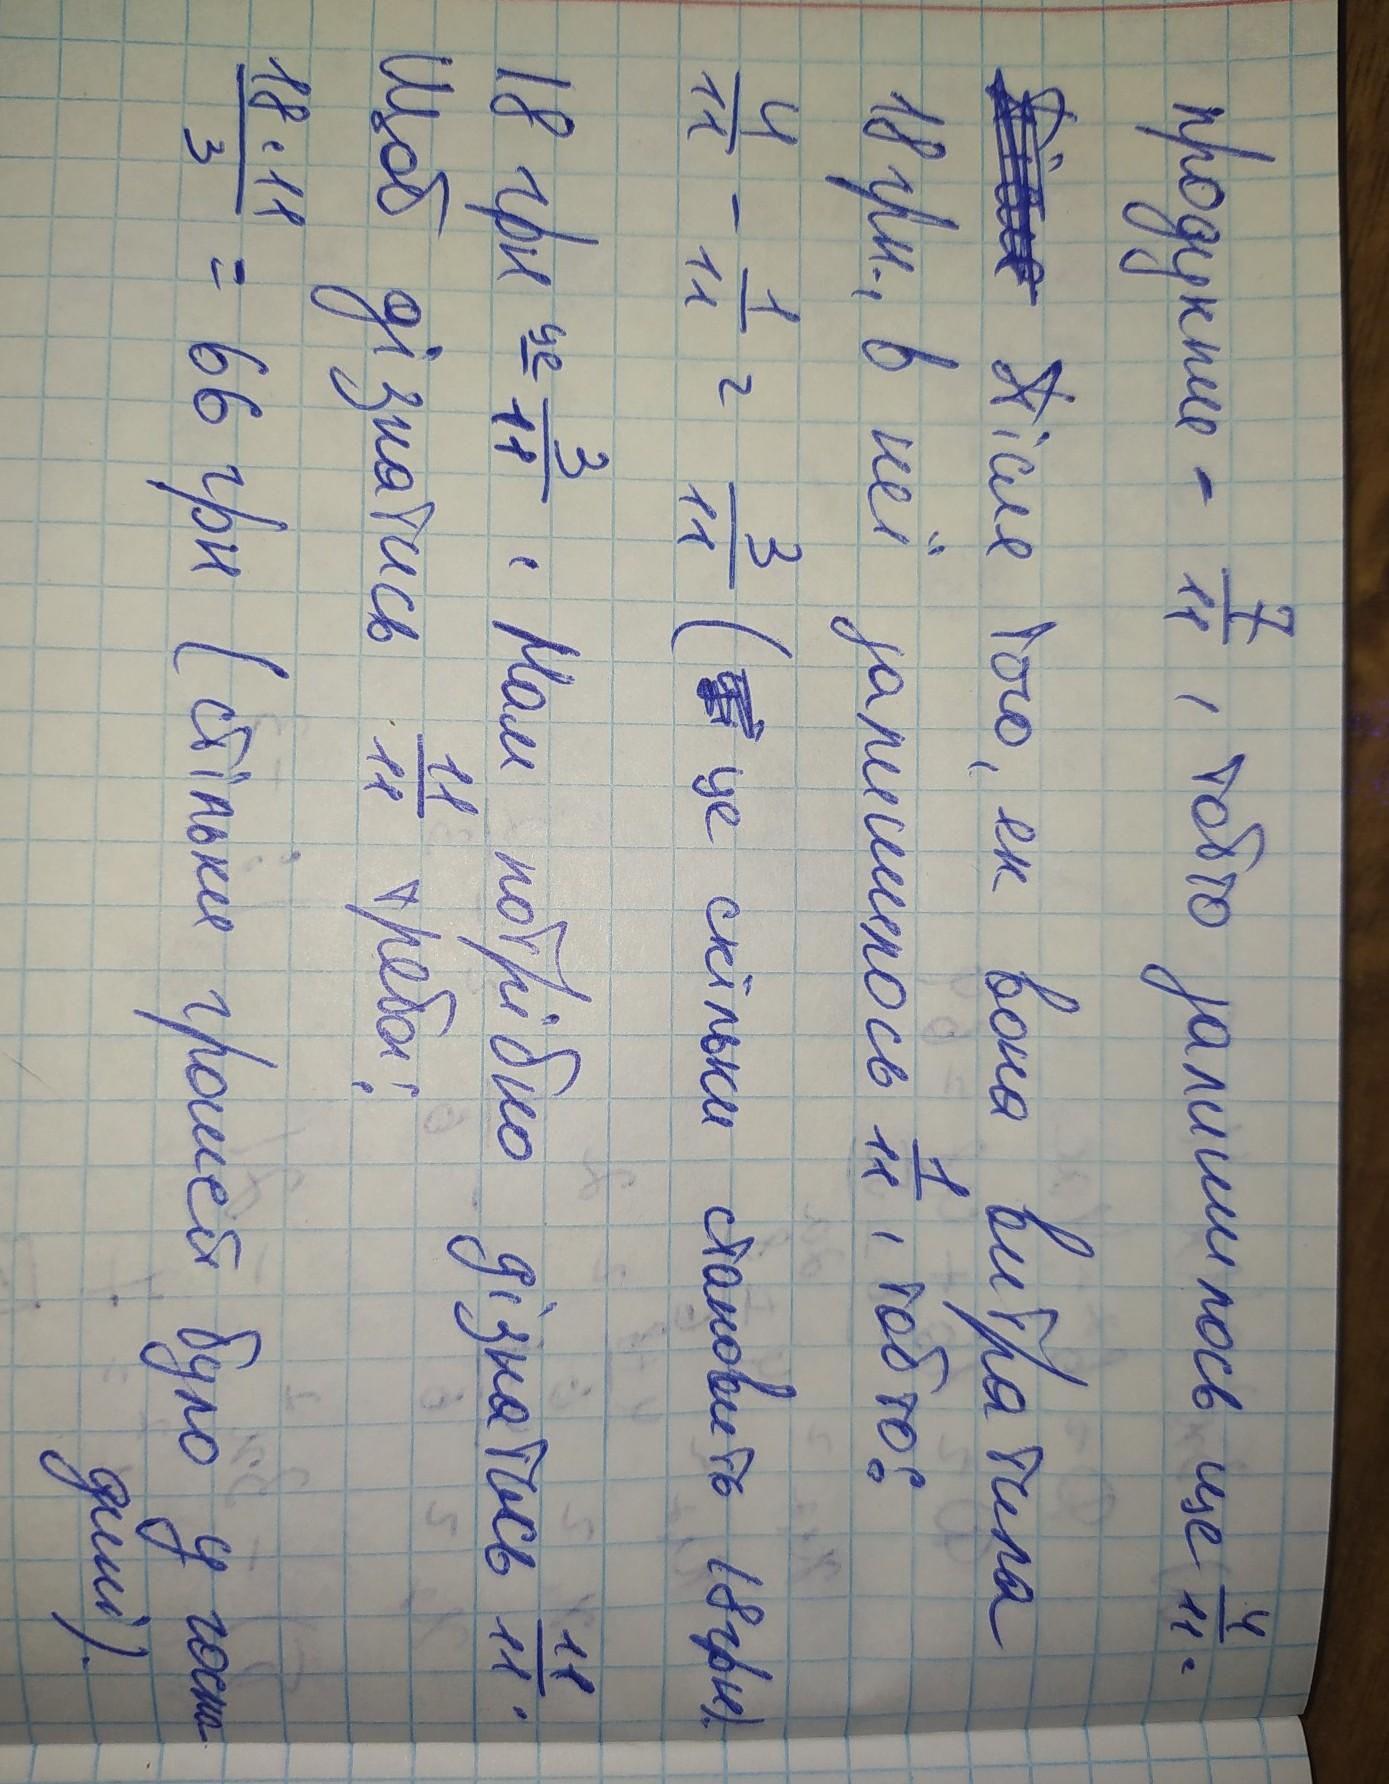 продукти - 7/11, тобто залишилось ще 4/11.
Після того, як вона витратила
18 грн., в неї залишилось 1/11, тобто:
4/11 - 1/11 = 3/11 (це скільки становить 18 грн).
18 грн це 3/11. Нам потрібно дізнатись 11/11.
Щоб дізнатись 11/11 треба:
18·11/3 = 66 грн (стільки грошей було у госпо-
дині).